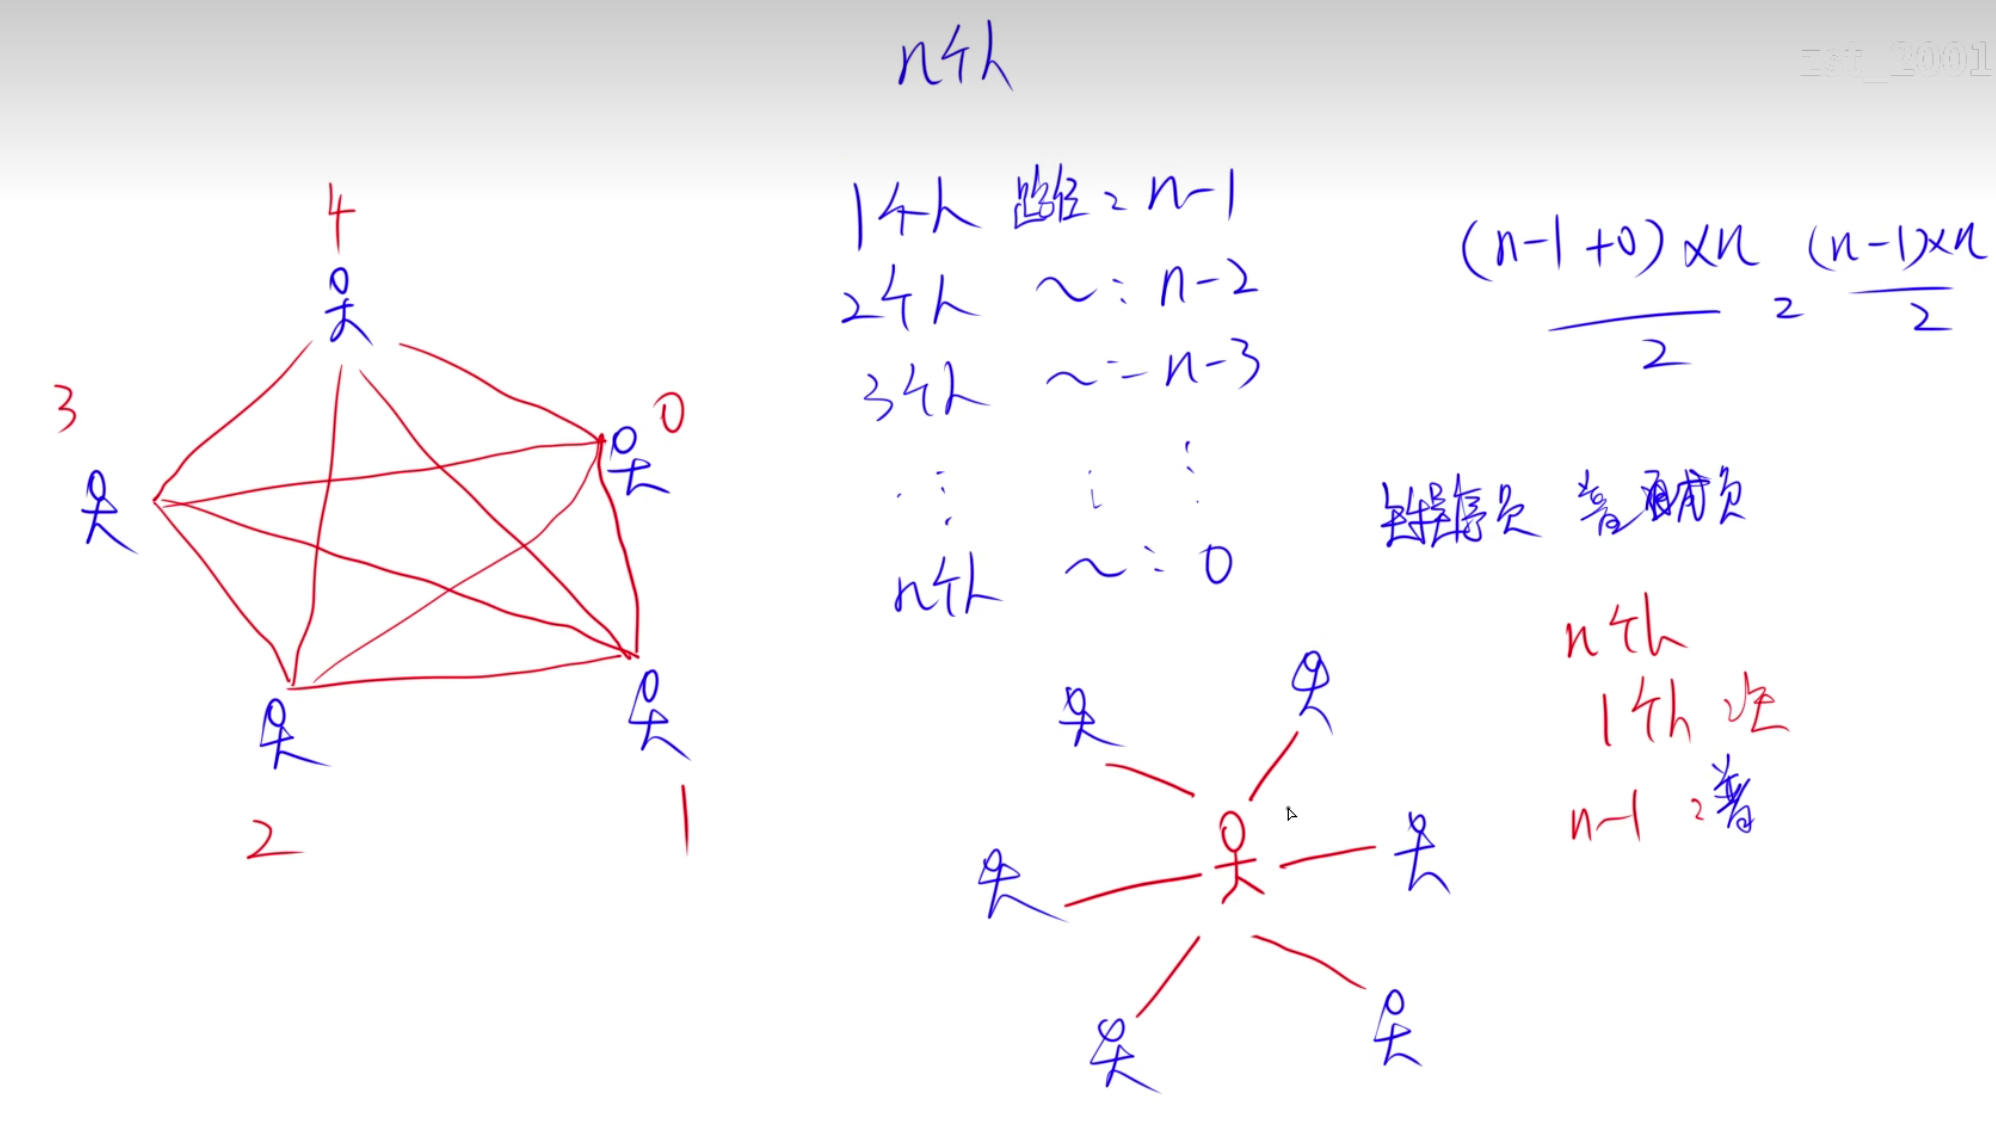 n个人
zst_2001
4
3
0
2
1
1个人 路径: n-1
2个人 ~: n-2
3个人 ~: n-3
⋮ ⋮ ⋮
n个人 ~: 0
(n-1+0)×n / 2 = (n-1)×n / 2
主程序员 普通成员
n个人
1个人 主
n-1 : 普